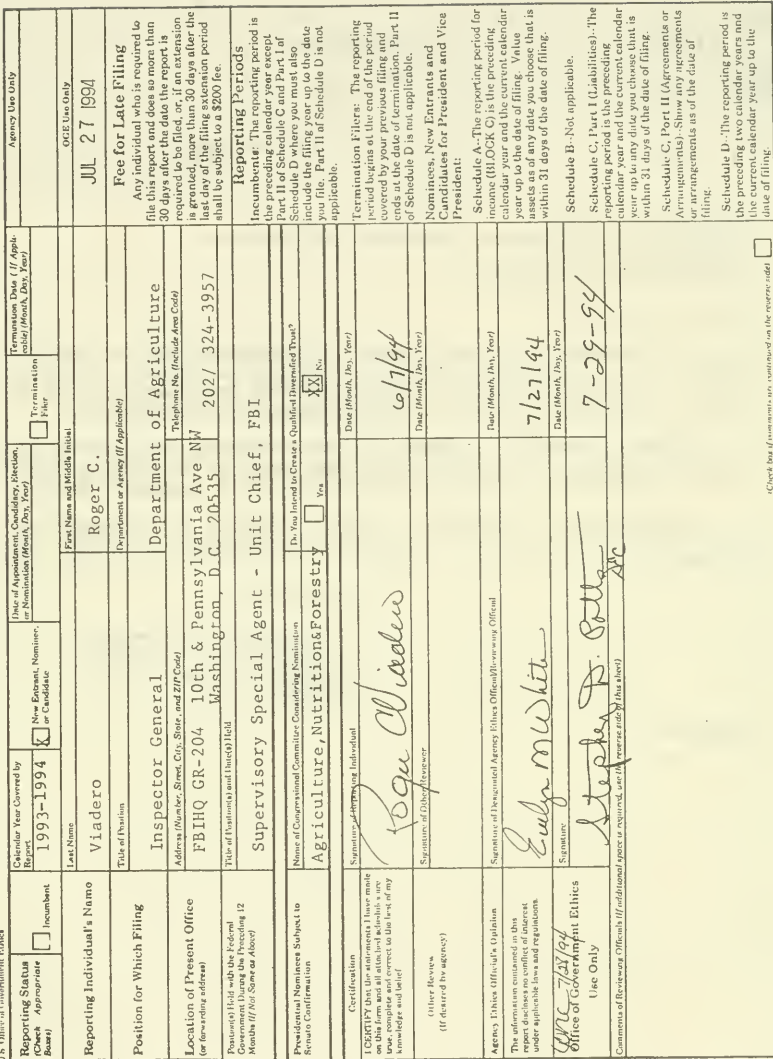 U S Office of Government Ethics
Reporting Status
(Check Appropriate
Boxes)
Incumbent
Calendar Year Covered by
Report
1993-1994
X
New Entrant, Nominee,
or Candidate
Date of Appointment, Candidacy, Election,
or Nomination (Month, Day, Year)
Termination
Filer
Termination Date (If Appli-
cable) (Month, Day, Year)
Agency Use Only
Reporting Individual's Name
Last Name
Viadero
First Name and Middle Initial
Roger C.
OGE Use Only
JUL 27 1994
Position for Which Filing
Title of Position
Inspector General
Department or Agency (If Applicable)
Department of Agriculture
Location of Present Office
(or forwarding address)
Address (Number, Street, City, State, and ZIP Code)
FBIHQ GR-204 10th & Pennsylvania Ave NW
Washington, D.C. 20535
Telephone No. (Include Area Code)
202/ 324-3957
Position(s) Held with the Federal
Government During the Preceding 12
Months (If Not Same as Above)
Title of Position(s) and Date(s) Held
Supervisory Special Agent - Unit Chief, FBI
Presidential Nominees Subject to
Senate Confirmation
Name of Congressional Committee Considering Nomination
Agriculture,Nutrition&Forestry
Do You Intend to Create a Qualified Diversified Trust?
Yes
XX No
Certification
I CERTIFY that the statements I have made
on this form and all attached schedules are
true, complete and correct to the best of my
knowledge and belief
Signature of Reporting Individual
Roger C Viadero
Date (Month, Day, Year)
6/7/94
Other Review
(If desired by agency)
Signature of Other Reviewer
Date (Month, Day, Year)
Agency Ethics Official's Opinion
The information contained in this
report discloses no conflict of interest
under applicable laws and regulations.
Signature of Designated Agency Ethics Official/Reviewing Official
Evelyn M White
Date (Month, Day, Year)
7/27/94
7/28/94
Office of Government Ethics
Use Only
Signature
Stephen D. Potts
Date (Month, Day, Year)
7-29-94
Comments of Reviewing Officials (If additional space is required, use the reverse side of this sheet)
(Check box if comments are continued on the reverse side)
Fee for Late Filing
Any individual who is required to
file this report and does so more than
30 days after the date the report is
required to be filed, or, if an extension
is granted, more than 30 days after the
last day of the filing extension period
shall be subject to a $200 fee.
Reporting Periods
Incumbents: The reporting period is
the preceding calendar year except
Part II of Schedule C and Part I of
Schedule D where you must also
include the filing year up to the date
you file. Part II of Schedule D is not
applicable.
Termination Filers: The reporting
period begins at the end of the period
covered by your previous filing and
ends at the date of termination. Part II
of Schedule D is not applicable.
Nominees, New Entrants and
Candidates for President and Vice
President:
Schedule A--The reporting period for
income (BLOCK C) is the preceding
calendar year and the current calendar
year up to the date of filing. Value
assets as of any date you choose that is
within 31 days of the date of filing.
Schedule B--Not applicable.
Schedule C, Part I (Liabilities)--The
reporting period is the preceding
calendar year and the current calendar
year up to any date you choose that is
within 31 days of the date of filing.
Schedule C, Part II (Agreements or
Arrangements)--Show any agreements
or arrangements as of the date of
filing.
Schedule D--The reporting period is
the preceding two calendar years and
the current calendar year up to the
date of filing.